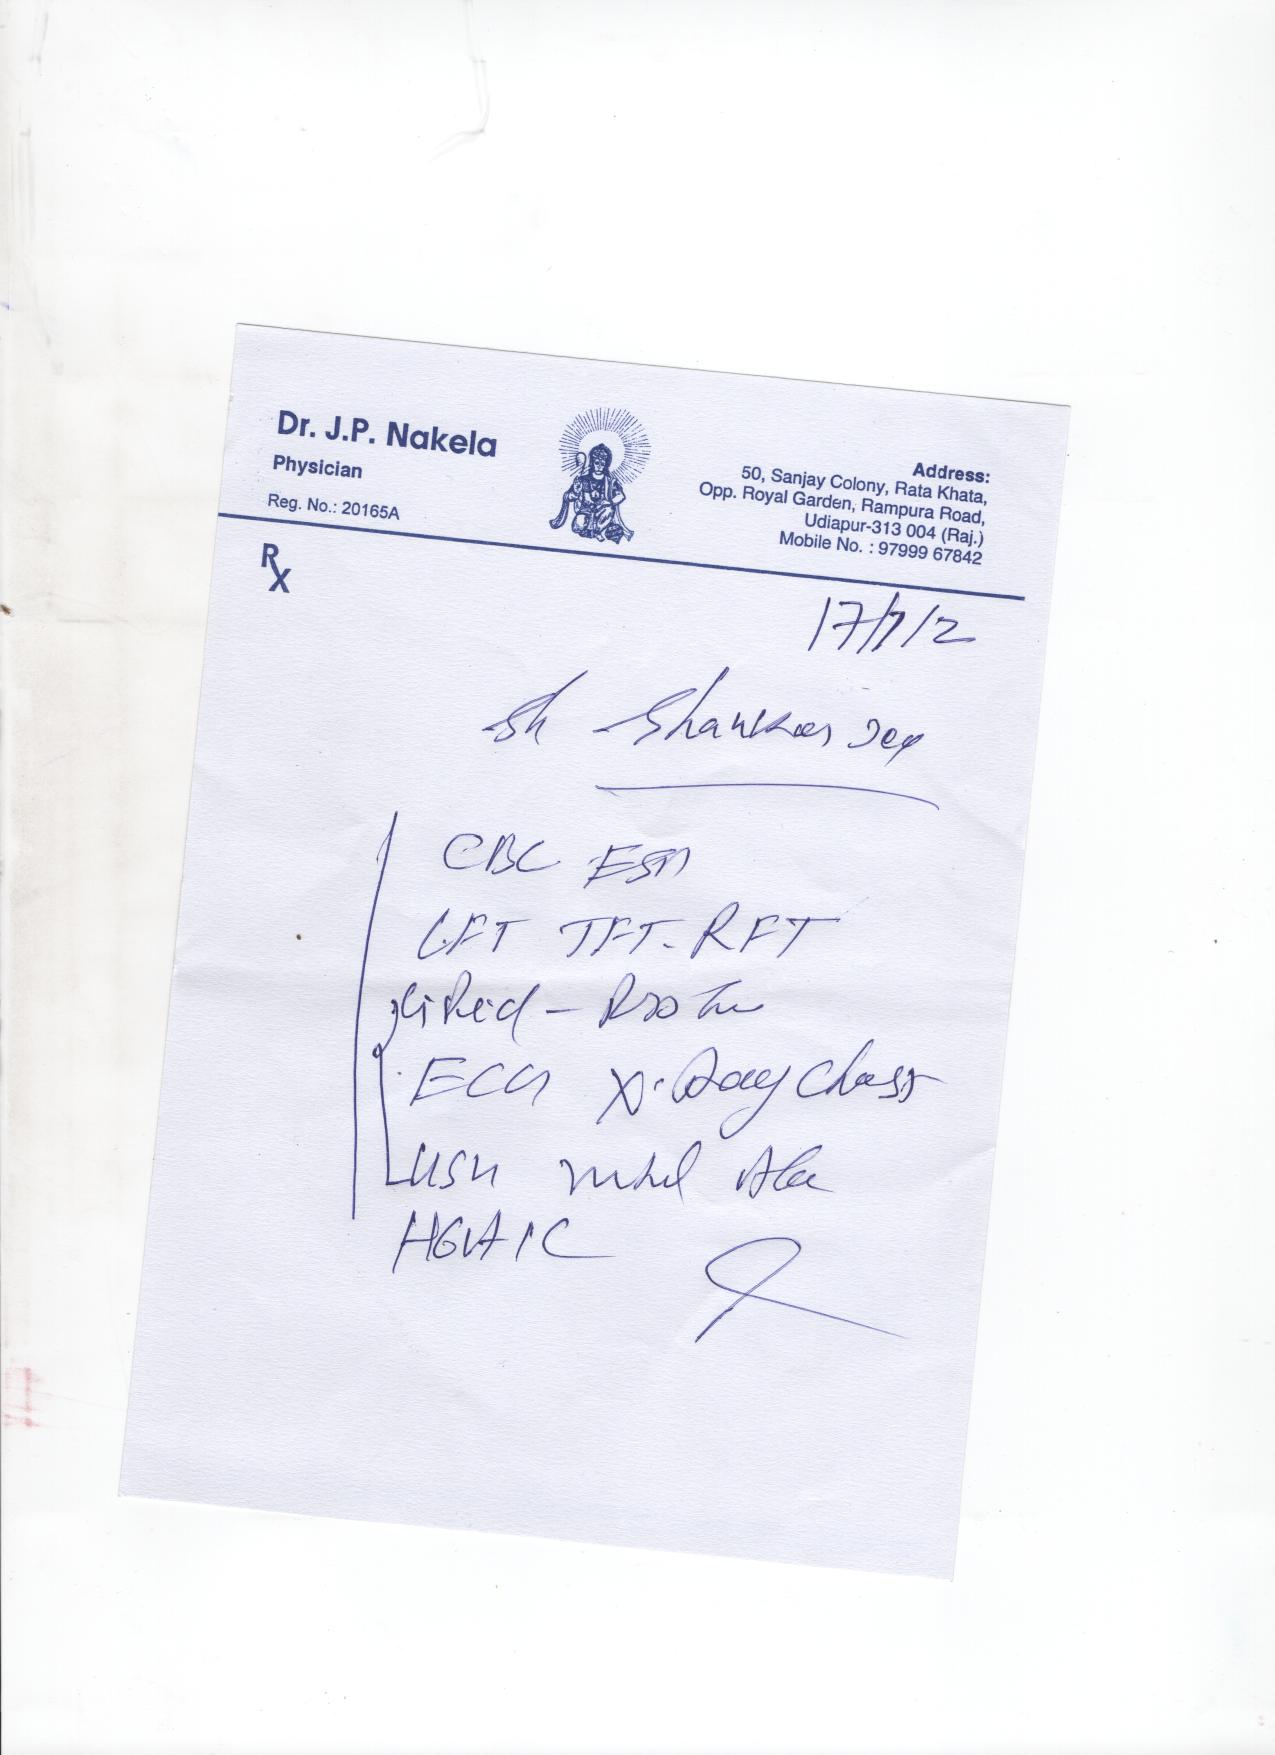 Dr. J.P. Nakela
Physician
Reg. No.: 20165A
Address:
50, Sanjay Colony, Rata Khata,
Opp. Royal Garden, Rampura Road,
Udiapur-313 004 (Raj.)
Mobile No. : 97999 67842
Rx
17/7/2
Sh Shankar
CBC ESR
LFT TFT. RFT
Lipid -
ECG X-Ray Chest
USG
HGA1C